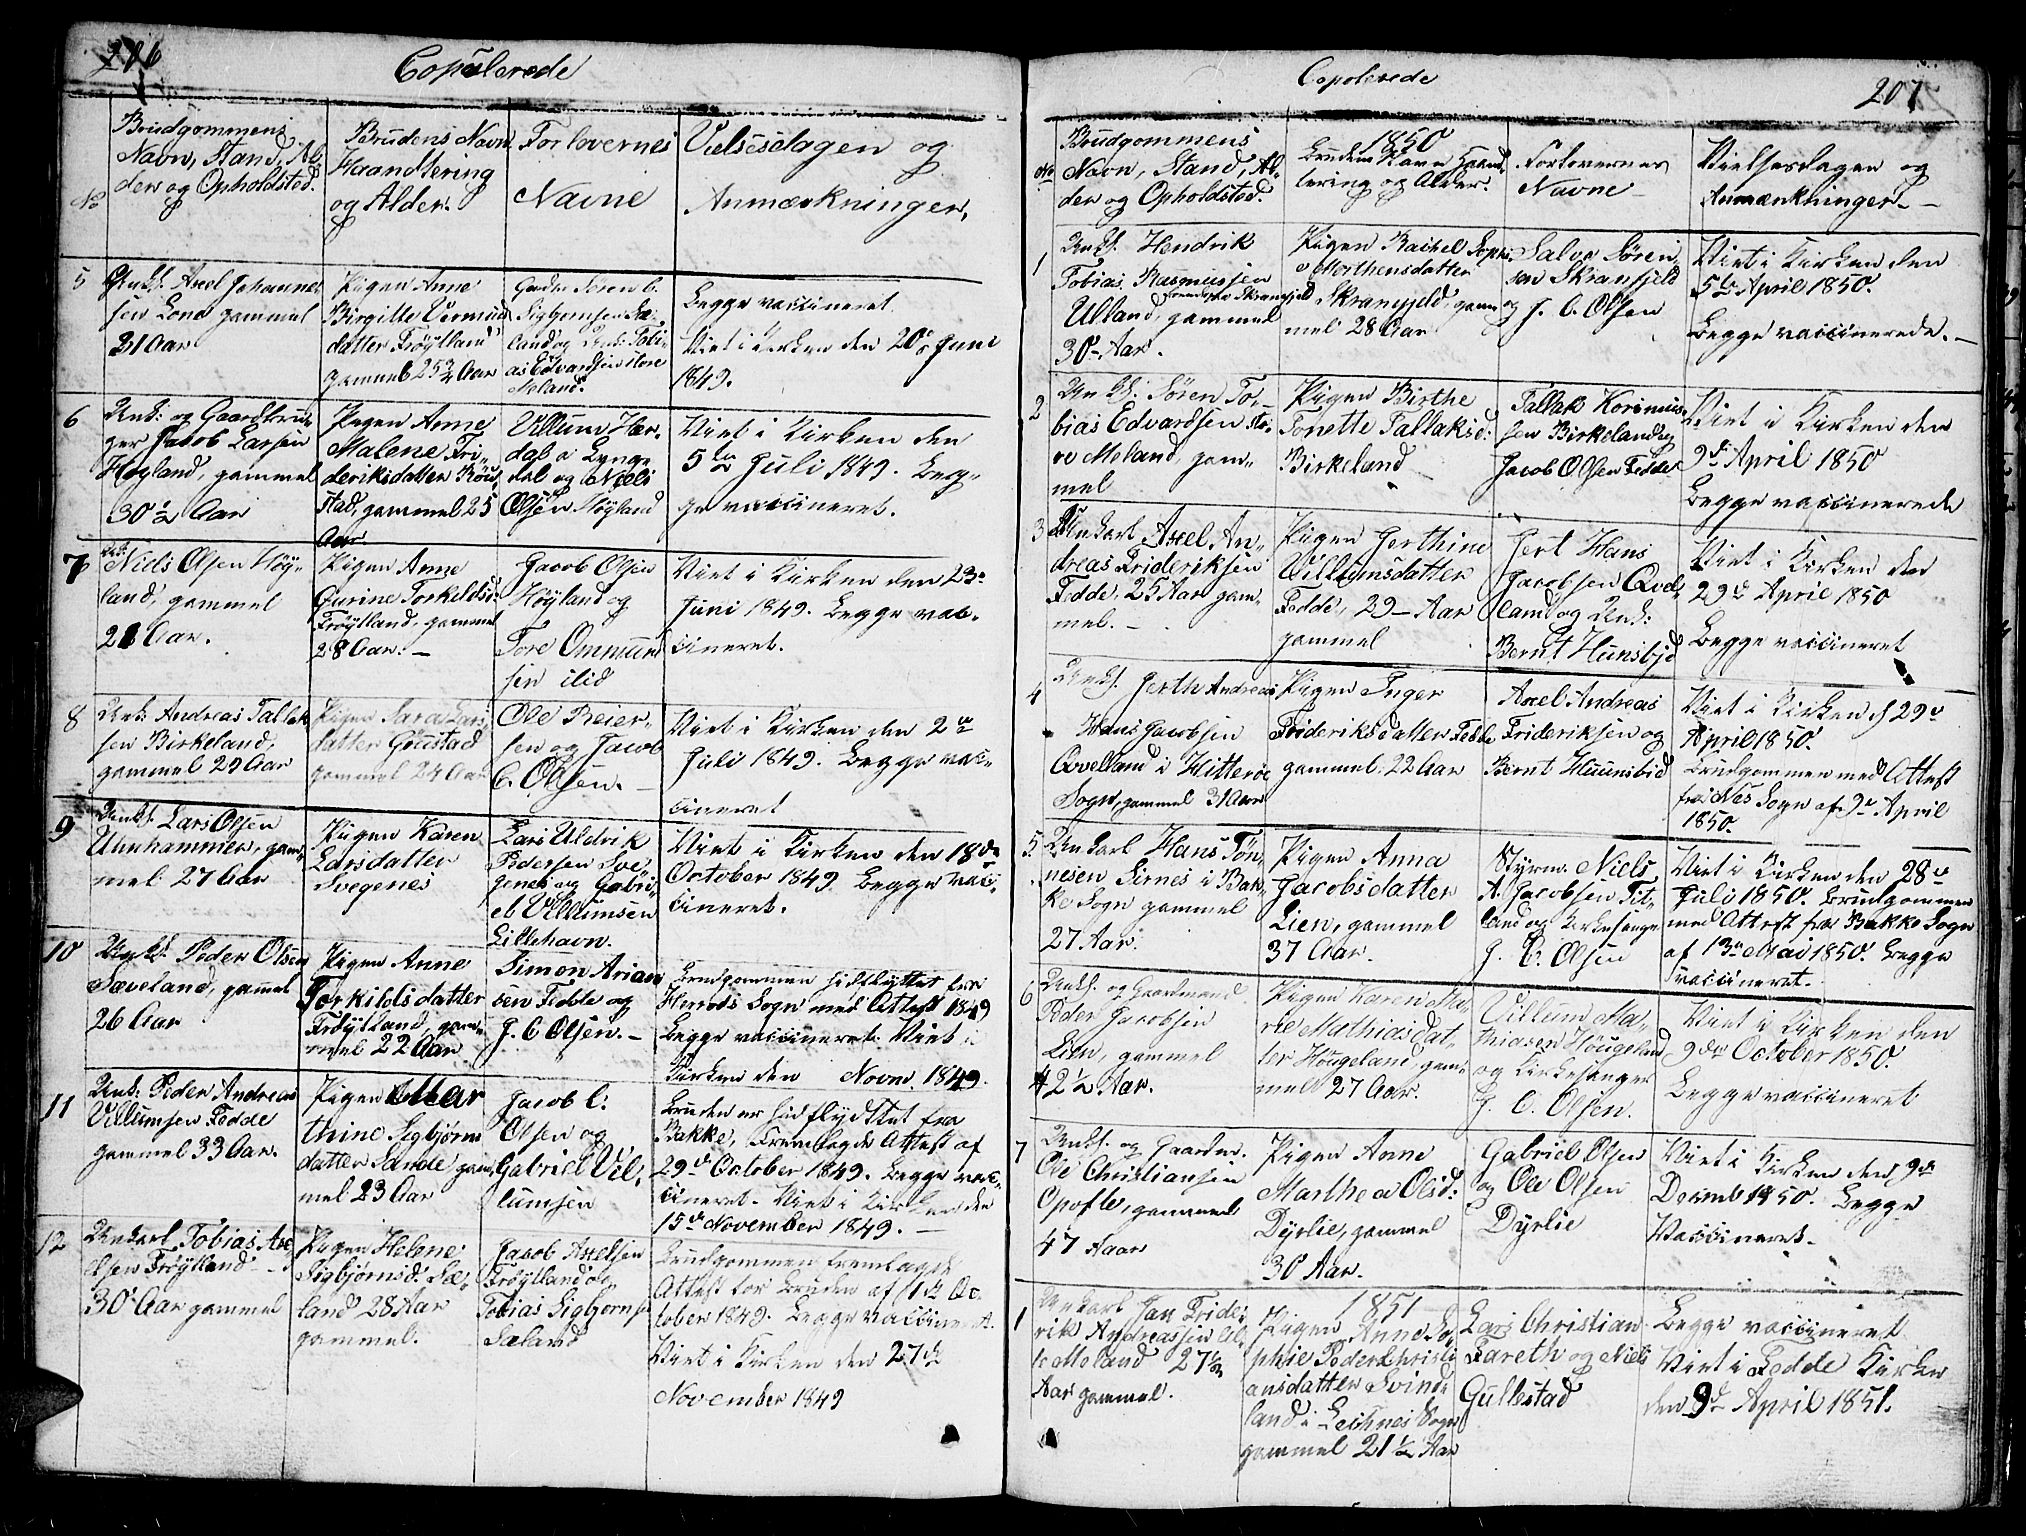 206
Copulerede
No
Brudgommens
Navn, Stand, Al-
der og Opholdsted.
Brudens Navn
Haandtering
og Alder.
Forlovernes
Navne
Vielsesdagen og
Anmærkninger,
5
Axel Johannes
sen Lone gammel
31 Aar
Pigen Anne
Birgitte
datter Frøÿtland
gammel 25¾ Aar
Søren C.
Sigbjørnsen Sæ-
land og Unk: Tobi-
as Edvardsen store
Meland.
Begge vaccineret
Viet i Kirken den 20de Juni
1849.
6
Unk: og Gaardbru-
ger Jacob Larsen
Høyland, gammel
30½ Aar
Pigen Anne
Malene Fri-
deriksdatter
stad, gammel 25
Aar.
Villum Hær-
dal o Lyng-
dal og Niels
Olsen Høÿland
Viet i Kirken den
5te Juli 1849. Beg-
ge vaccineret.
7
Unk:
Niels Olsen Høÿ-
land, gammel
21 Aar.
Pigen Anne
Gurine Torkeldsd:
Frøÿtland, gammel
28 Aar. —
Jacob Olsen
Høÿland og
Tore Ommund
sen ilid
Viet i Kirken den 23de
Juni 1849. Begge vac-
cineret.
8
Unk: Andreas Tallak
sen Birkeland,
gammel 29 Aar
Pigen Sara Lars
datter Goustad
gammel 24 Aar
Ole Reier-
sen og Jacob
C. Olsen. —
Viet i Kirken den 2de
Juli 1849. Begge vac-
cineret
9
Unk: Lars Olsen
Uhnhammer, gam-
mel 27 Aar
Pigen Karen
Larsdatter
Svegenes
Lars Uldrik
Pedersen Sve-
genes og Gabri-
el Villumsen
Lillehavn.
Viet i Kirken den 18de
October 1849. Begge vac-
cineret.
10
Unk: Peder Olsen
Sæveland, gammel
26 Aar
Pigen Anne
Torkildsdatter
Frøÿtland, gam-
mel 22 Aar
Simon Arian
sen Fedde og
J. C Olsen. —
Brudgommen hidflyttet fra
Herreds Sogn med Attest 1849
Begge vaccineret. Viet i
Kirken den Novm. 1849.
11
Unk: Peder Andreas
Villumsen Fedde
gammel 33 Aar.
Pigen Mar
thine Sigbjørns
datter Sande gam-
mel 23 Aar
Jacob C:
Olsen og
Gabriel Vil-
lumsen
Bruden er hidflydttet fra
Bakke, Fremlagde Attest af
29de October 1849. Begge vac-
cineret. Viet i Kirken den
15de November 1849. —
12
Unkarl Tobias Ax-
elsen Frøÿtland
30 Aar gammel
Pigen Helene
Sigbjørnsd: Sæ-
land 28 Aar
gammel.
Jacob Axelsen
Frøÿtland og
Tobias Sigbjørnsen
Sæland
Brudgommen fremlagde
Attest for Bruden af 1de Oc-
tober 1849. Begge vaccineret.
Viet i Kirken den 27de
November 1849
Copolerede
207
No
Brudgommens
Navn, Stand, Al-
der og Opholdsted.
1850
Brudens Navn Haand-
tering og Alder.
Forlovernes
Navne —
Vielsesdagen og
Anmærkninger. —
1
Unk: Hendrik
Tobias Rasmussen
Ulland, gammel
30 Aar.
Pigen Rachel Sophi
e Morthensdatter
Skranfjeld, gam-
mel 28 Aar
Salve Søren
sen Skranfjeld
og J. C. Olsen
Viet i Kirken den
5te April 1850.
Begge vaccinerede. —
2
Un K: Søren To-
bias Edvardsen sto-
re Meland, gam-
mel
Pigen Birthe
Tonette Tallaksd:
Birkeland
Tallak
sen Birkeland og
Jacob Olsen Fedde
Viet i Kirken den
9de April 1850
Begge vaccinerede
3
Unkarl Axel An-
dreas Frideriksen
Fedde, 25 Aar gam-
mel. —
Pigen Gerthine
Villumsdatter
Fedde, 29 Aar
gammel
Gert Hans
Jacobsen Qvel-
land og Unk:
Bernt Hunsbjd
Viet i Kirken den
29de April 1850
Begge vaccineret
4
Unk: Gerth Andreas
Hans Jacobsen
Qvelland i Hitterøe
Sogn, gammel 31 Aar
Pigen Inger
Frideriksdatter Fedde
gammel 22 Aar
Axel Andreas
Frideriksen og
Bernt Huunsbid
Viet i Kirken d 29de
April 1850.
Brudgommen med Attest
fra Nes Sogn af 9de April
1850.
5.
Unkarl Hans Tøn-
nesen Sirnes i Bak-
ke Sogn gammel
27 Aar.
Pigen Anna
Jacobsdatter
Lien, gammel
37 Aar.
Styrm. Niels
A. Jacobsen Tit-
land og Kirkesanger
J. C. Olsen
Viet i Kirken den 28de
Juli 1850. Brudgommen
med Attest fra Bakke Sogn
af 13de Mai 1850. Begge
vaccineret.
6
Unk: og Gaardmand
Peder Jacobsen
Lien, gammel
42½ Aar.
Pigen Karen Ma-
rie Mathiasdat-
ter Höugeland, gam-
mel 27 Aar.
Villum Ma-
thiasen Höugeland
og Kirkesanger
J. C. Olsen.
Viet i Kirken den
9de October 1850.
Begge vaccineret
7
Unk: og Gaardm.
Ole Christiansen
Opofte, gammel
47 Aaar
Pigen Anne
Marthe Olsd:
Dÿrlie, gammel
30 Aar.
Gabriel Olsen
og Ole Olsen
Dÿrlie
Viet i Kirken den 9de
Decemb 1850. Begge
Vaccineret.
1
Unkarl Jan Fride-
rik Andreassen lil-
le Meland 27½
Aar gammel.
1851
Pigen Anne So-
phie Peder Christi
ansdatter Svind-
land i Sogn
gammel 21½ Aar
Lars Christian
Fareth og Niels
Gullestad
Begge vaccineret
Viet i Fedde Kirke
den 9de April 1851.